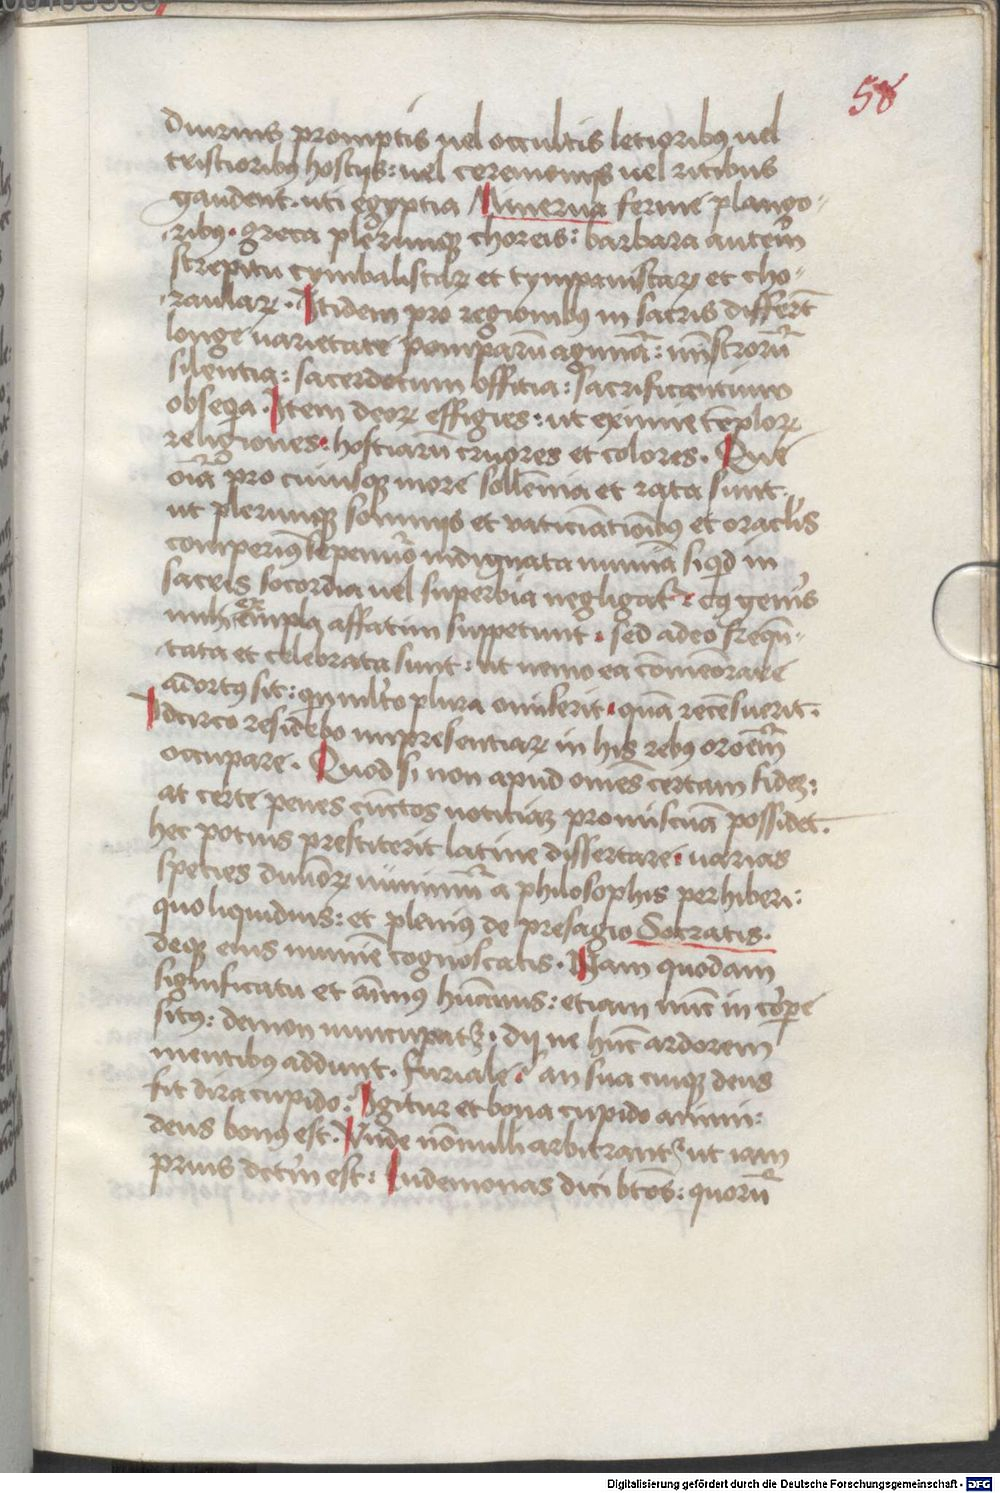 58
diurnis promptis uel occultis letioribꝰ uel
tristioribꝰ hostijs: uel ceremonijs uel ritibus
gaudent. uti egyptia Minerua ferme plango-
ribꝰ. greca plerumqꝫ choreis: barbara autem̄
strepitu cymbalistaꝝ et tympanistaꝝ et cho-
raulaꝝ. Itidem pro regionibꝰ in sacris differēt
longe uarietate pomparū agminā: mīstrorū
silentia: sacerdotum offitia: sacrificantium
obseqia. Item deoꝝ effigies: ut exuuie tēploꝝ
religiones: hostiarū cruores et colores. Que
oīa pro cuiusqꝫ more sollēnia et rata sunt.
ut plerumqꝫ somnijs et vaticiātioībꝰ et oraclis
comperimꝰ sepenūo indignata numīa siqͥd in
sacris socordia uel superbia negligatʳ: cuꝰ genis
mih exempla affatim suppetunt. sed adeo freqn̄-
tata et celebrata sunt: ut nemo ea cōmeōrare
adortꝰ sit: qn multo plura omiserit. quā recēsuerit.
Idcirco residebo impresentiaꝝ in his rebꝰ oroēm
occupare. Quod si non apud omēs certam fidez:
at certe penes cūctos noticiaꝫ promiscuā possidet.
hec potius prestiterit latine dissertare. uarias
species diuiōꝝ numinū a philosophis perhiberi:
quo liquidius: et pleniꝰ de presagio Socratis.
deqꝫ eius numīe cognoscatis. Nam quodam
significatu et aīmꝰ hūanus: etiam nūc in corpe
situs: demon nuncupatʳ. dij ne hūc ardorem
mentibꝰ addunt. Furiale. an sua cuiqꝫ deus
fit dira cupido. Igitur et bona cupido animi:
deus bonꝰ est. Vnde nōnulli arbitrantʳ ut iam
prius dctm̄ est: Eudemonas dici btōs: quorū
Digitalisierung gefördert durch die Deutsche Forschungsgemeinschaft - DFG